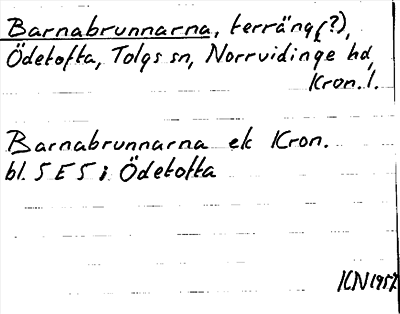 Barnabrunnarna, terräng(?),
Ödetofta, Tolgs sn, Norrvidinge hd,
Kron. l.
Barnabrunnarna ek Kron.
bl. 5 E 5 i Ödetofta
KN 1957